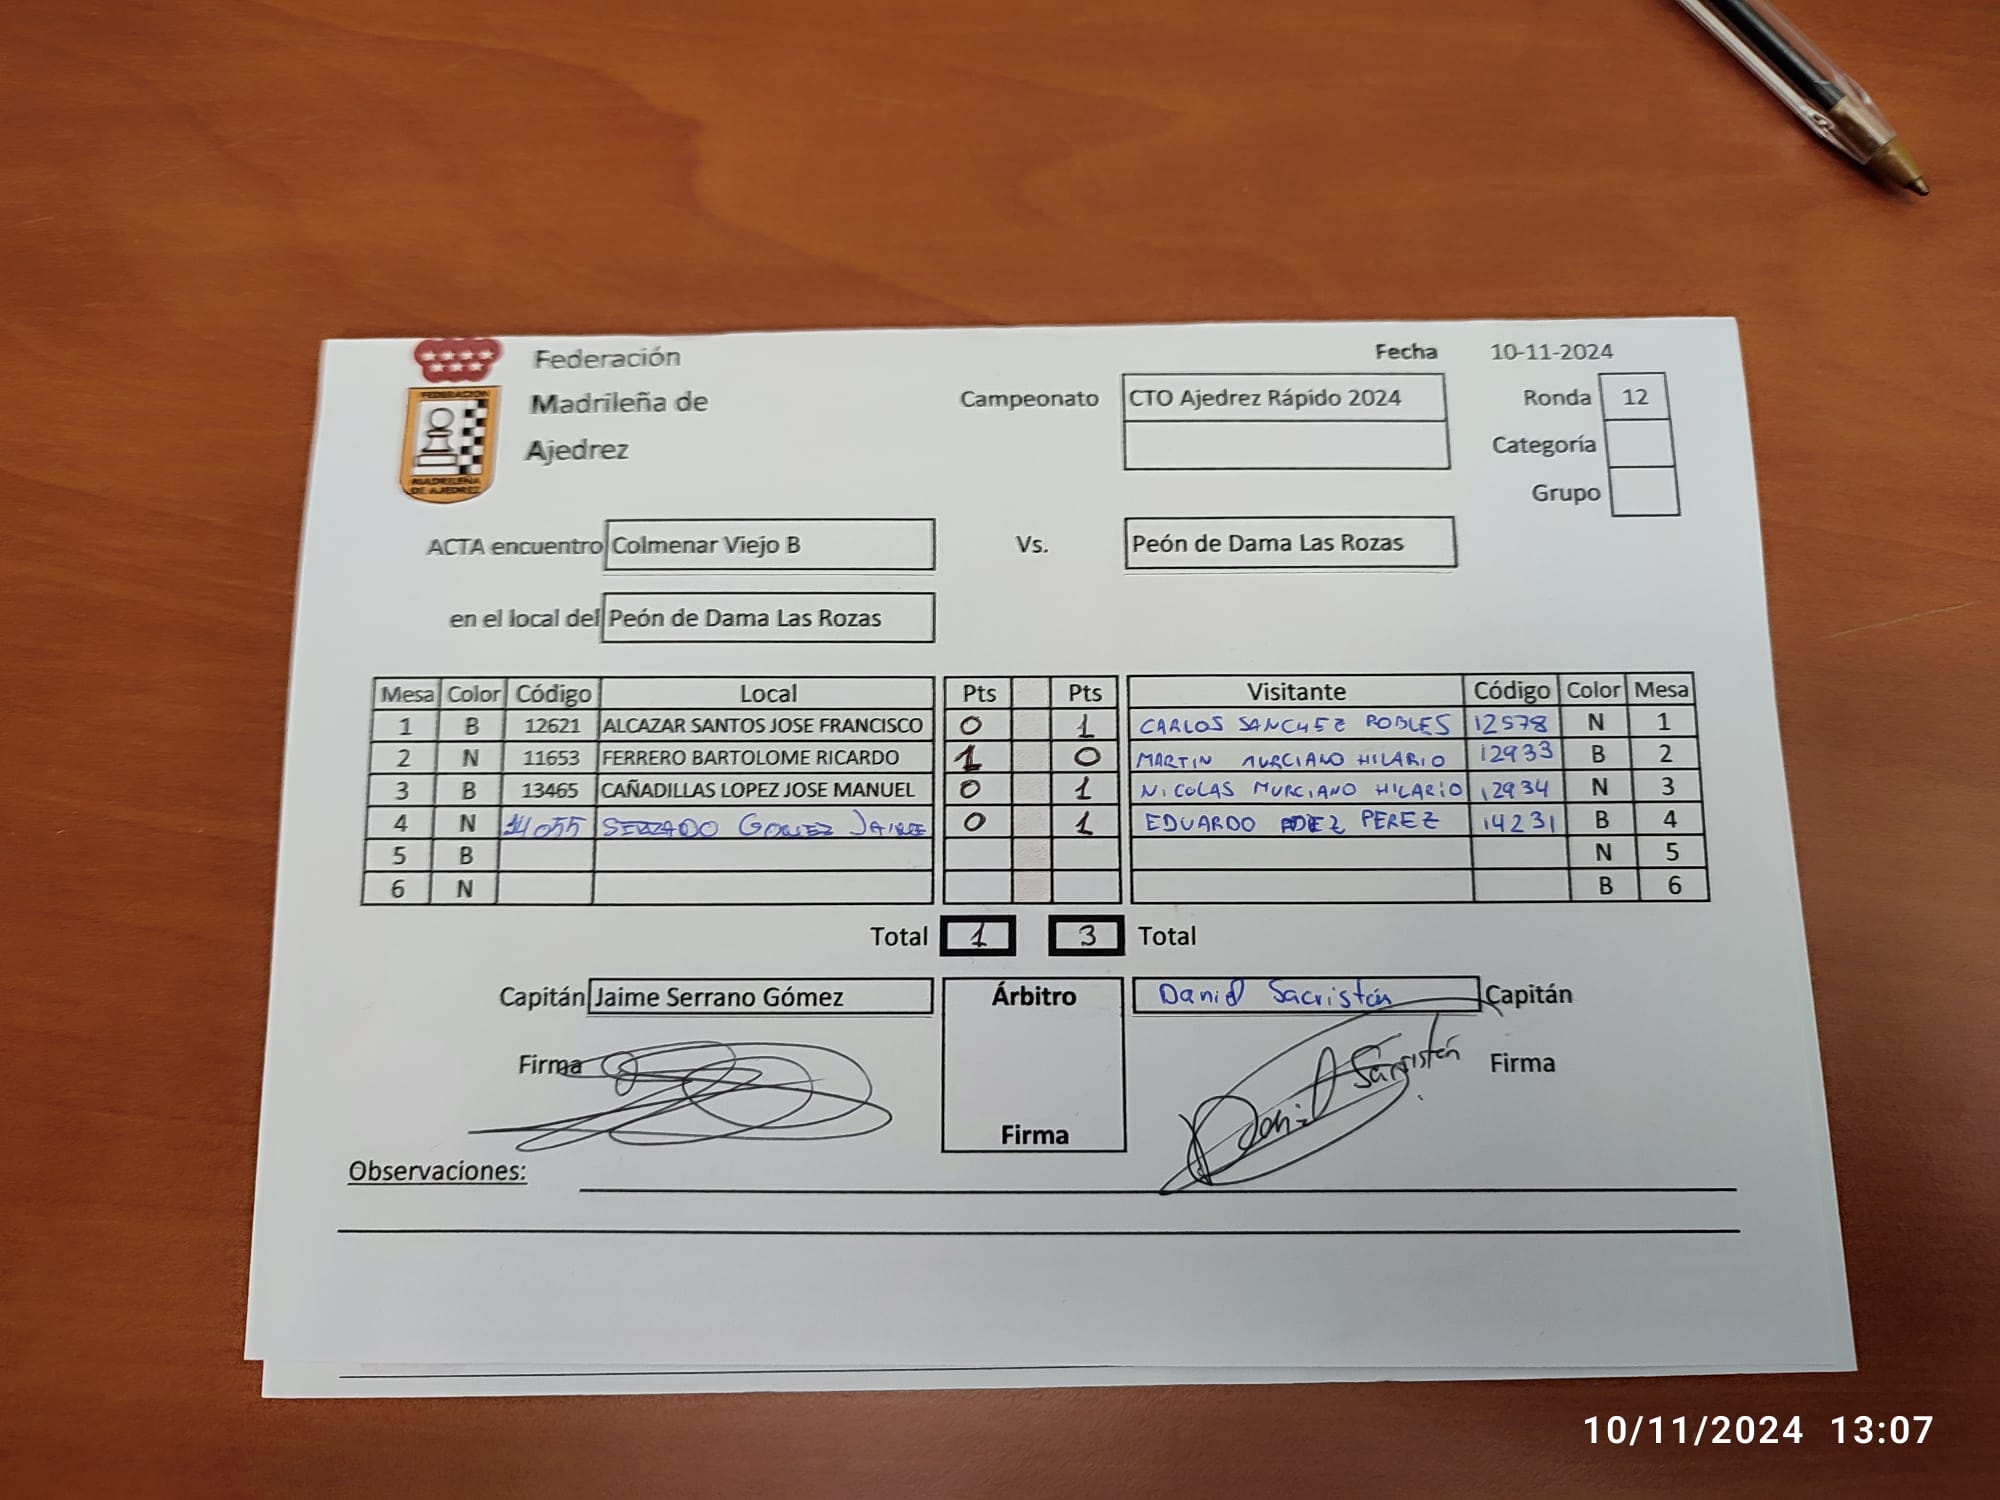 Federación Fecha 10-11-2024
Madrileña de Campeonato CTO Ajedrez Rápido 2024 Ronda 12
Ajedrez Categoría
FEDERACION
MADRILEÑA
DE AJEDREZ
Grupo
ACTA encuentro Colmenar Viejo B Vs. Peón de Dama Las Rozas
en el local del Peón de Dama Las Rozas
Mesa Color Código Local Pts Pts Visitante Código Color Mesa
1 B 12621 ALCAZAR SANTOS JOSE FRANCISCO 0 1 CARLOS SANCHEZ ROBLES 12578 N 1
2 N 11653 FERRERO BARTOLOME RICARDO 1 0 MARTIN MURCIANO HILARIO 12933 B 2
3 B 13465 CAÑADILLAS LOPEZ JOSE MANUEL 0 1 NICOLAS MURCIANO HILARIO 12934 N 3
4 N 14055 GOMEZ JAIME 0 1 EDUARDO PEREZ 14231 B 4
5 B N 5
6 N B 6
Total 1 3 Total
Capitán Jaime Serrano Gómez Árbitro Daniel Sacristán Capitán
Firma Daniel Sacristán Firma
Firma
Observaciones:
10/11/2024 13:07